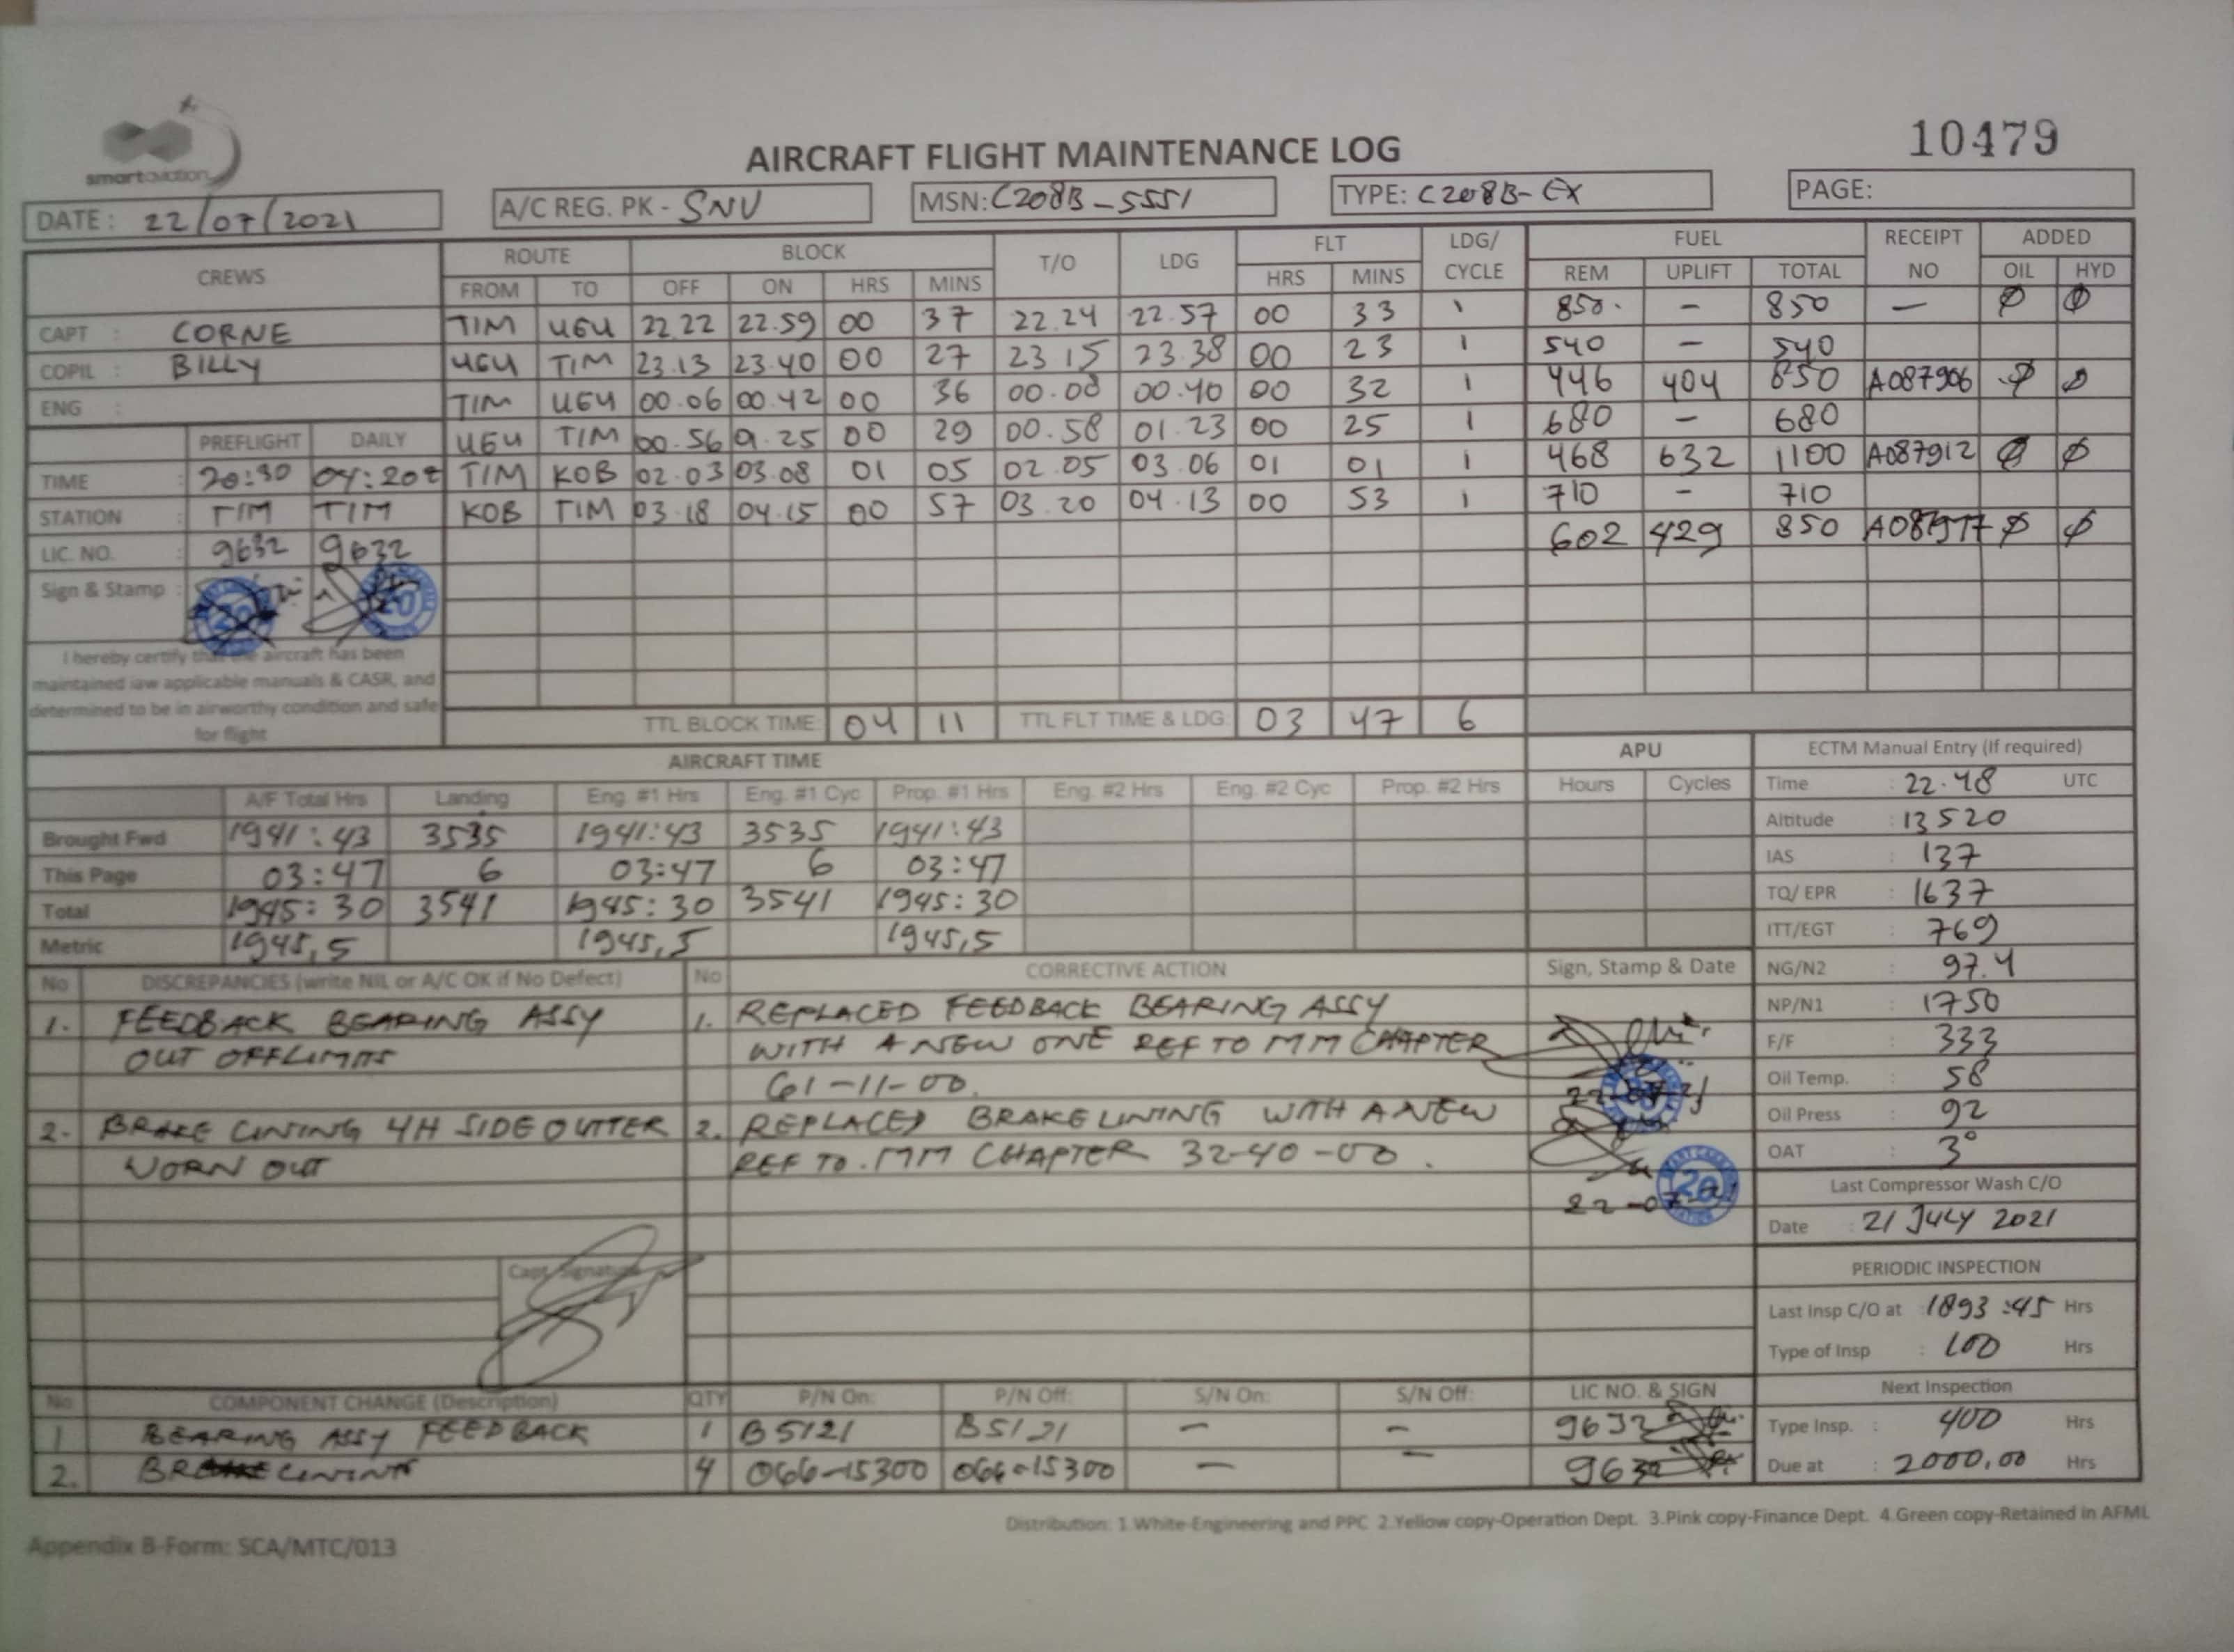 smartaviation
AIRCRAFT FLIGHT MAINTENANCE LOG
10479
DATE : 22/07/2021
A/C REG. PK - SNV
MSN: C208B-5551
TYPE: C208B-EX
PAGE:
CREWS ROUTE BLOCK T/O LDG FLT LDG/ CYCLE FUEL RECEIPT NO ADDED
FROM TO OFF ON HRS MINS HRS MINS REM UPLIFT TOTAL OIL HYD
CAPT : CORNE TIM UGU 22.22 22.59 00 37 22.24 22.57 00 33 1 850. - 850 - Ø Ø
COPIL : BILLY UGU TIM 23.13 23.40 00 27 23.15 23.38 00 23 1 540 - 540
ENG : TIM UGU 00.06 00.42 00 36 00.08 00.40 00 32 1 446 404 850 A087906 Ø Ø
PREFLIGHT DAILY UGU TIM 00.56 01.25 00 29 00.58 01.23 00 25 1 680 - 680
TIME : 20:30 04:20z TIM KOB 02.03 03.08 01 05 02.05 03.06 01 01 1 468 632 1100 A087912 Ø Ø
STATION : TIM TIM KOB TIM 03.18 04.15 00 57 03.20 04.13 00 53 1 710 - 710
LIC. NO. : 9632 9632 602 429 850 Ø Ø
Sign & Stamp :
I hereby certify that the aircraft has been
maintained iaw applicable manuals & CASR, and
determined to be in airworthy condition and safe
for flight
TTL BLOCK TIME: 04 11 TTL FLT TIME & LDG: 03 47 6
AIRCRAFT TIME APU ECTM Manual Entry (If required)
A/F Total Hrs Landing Eng. #1 Hrs Eng. #1 Cyc Prop. #1 Hrs Eng. #2 Hrs Eng. #2 Cyc Prop. #2 Hrs Hours Cycles
Brought Fwd 1941:43 3535 1941:43 3535 1941:43
This Page 03:47 6 03:47 6 03:47
Total 1945:30 3541 1945:30 3541 1945:30
Metric 1945,5 1945,5 1945,5
Time : 22.48 UTC
Altitude : 13520
IAS : 137
TQ/ EPR : 1637
ITT/EGT : 769
NG/N2 : 97.4
NP/N1 : 1750
F/F : 333
Oil Temp. : 58
Oil Press : 92
OAT : 3°
Last Compressor Wash C/O
Date : 21 JULY 2021
PERIODIC INSPECTION
Last Insp C/O at : 1893:45 Hrs
Type of Insp : 100 Hrs
Next Inspection
Type Insp. : 400 Hrs
Due at : 2000,00 Hrs
No DISCREPANCIES (write NIL or A/C OK if No Defect) No CORRECTIVE ACTION Sign, Stamp & Date
1. FEEDBACK BEARING ASSY 1. REPLACED FEEDBACK BEARING ASSY
OUT OFFLIMITS WITH A NEW ONE REF TO MM CHAPTER
61-11-00.
2. BRAKE LINING LH SIDE OUTTER 2. REPLACED BRAKE LINING WITH A NEW
WORN OUT REF TO. MM CHAPTER 32-40-00.
22-07-21
22-07-21
Capt. Signature
No COMPONENT CHANGE (Description) QTY P/N On: P/N Off: S/N On: S/N Off: LIC NO. & SIGN
1 BEARING ASSY FEEDBACK 1 B5121 B5121 - - 9632
2. BRAKE LINING 4 066-15300 066-15300 - - 9632
Distribution: 1.White-Engineering and PPC 2.Yellow copy-Operation Dept. 3.Pink copy-Finance Dept. 4.Green copy-Retained in AFML
Appendix B-Form: SCA/MTC/013